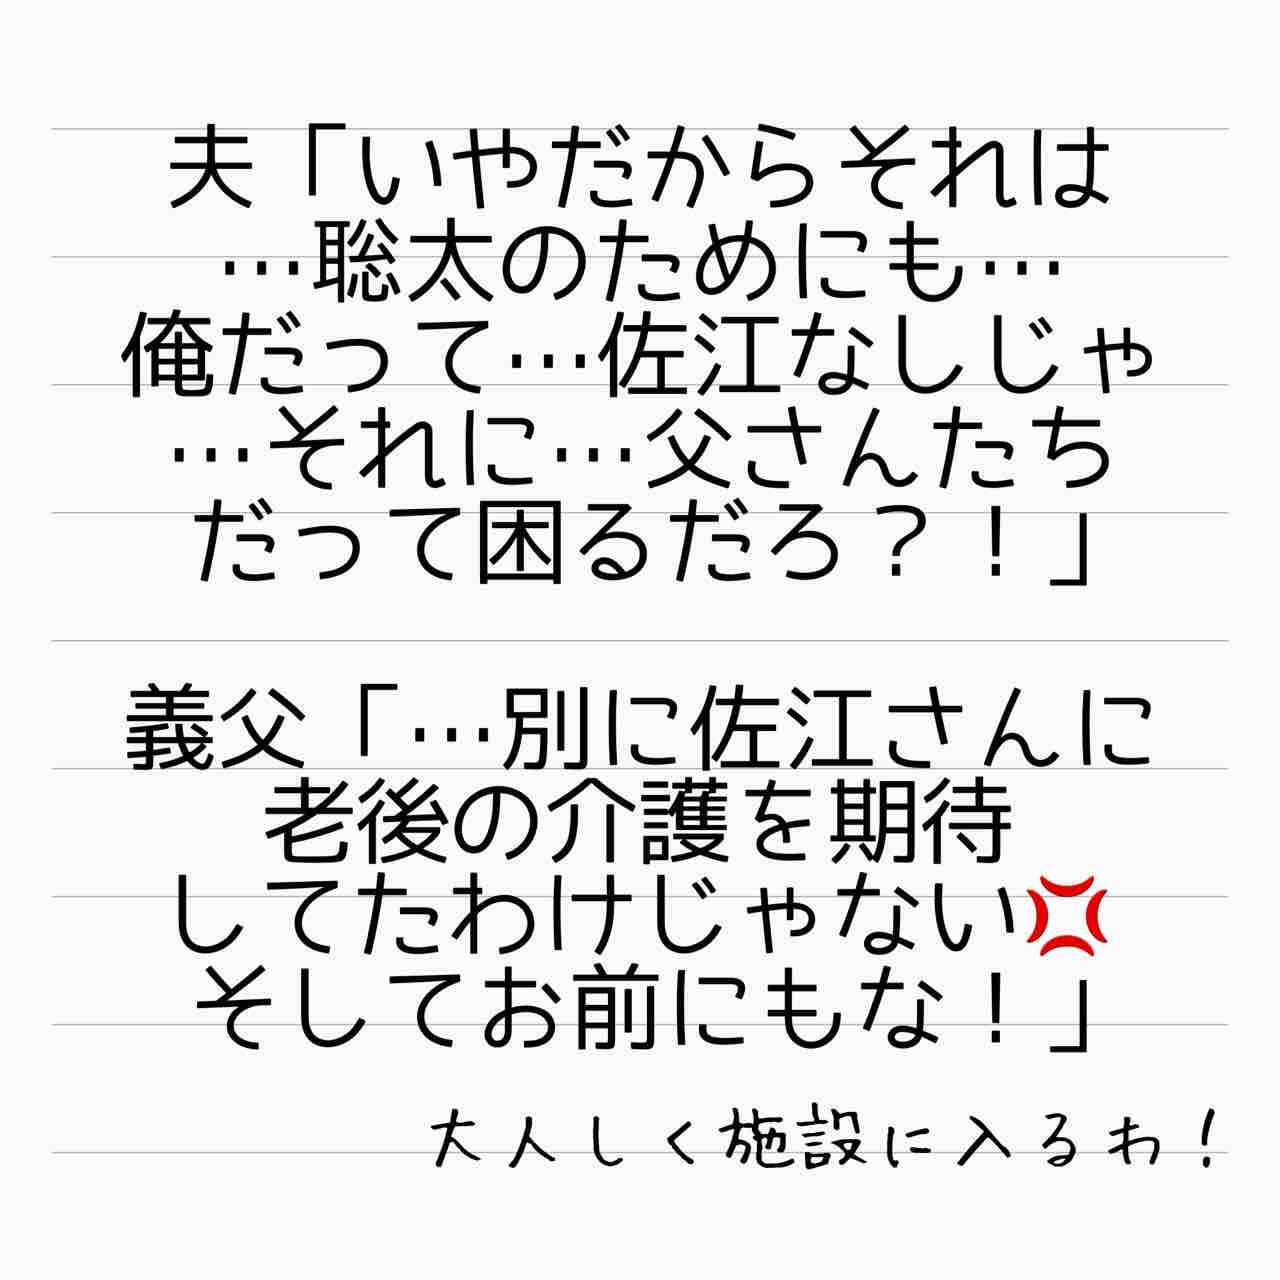 夫「いやだからそれは
…聡太のためにも…
俺だって…佐江なしじゃ
…それに…父さんたち
だって困るだろ？！」
義父「…別に佐江さんに
老後の介護を期待
してたわけじゃない💢
そしてお前にもな！」
大人しく施設に入るわ！